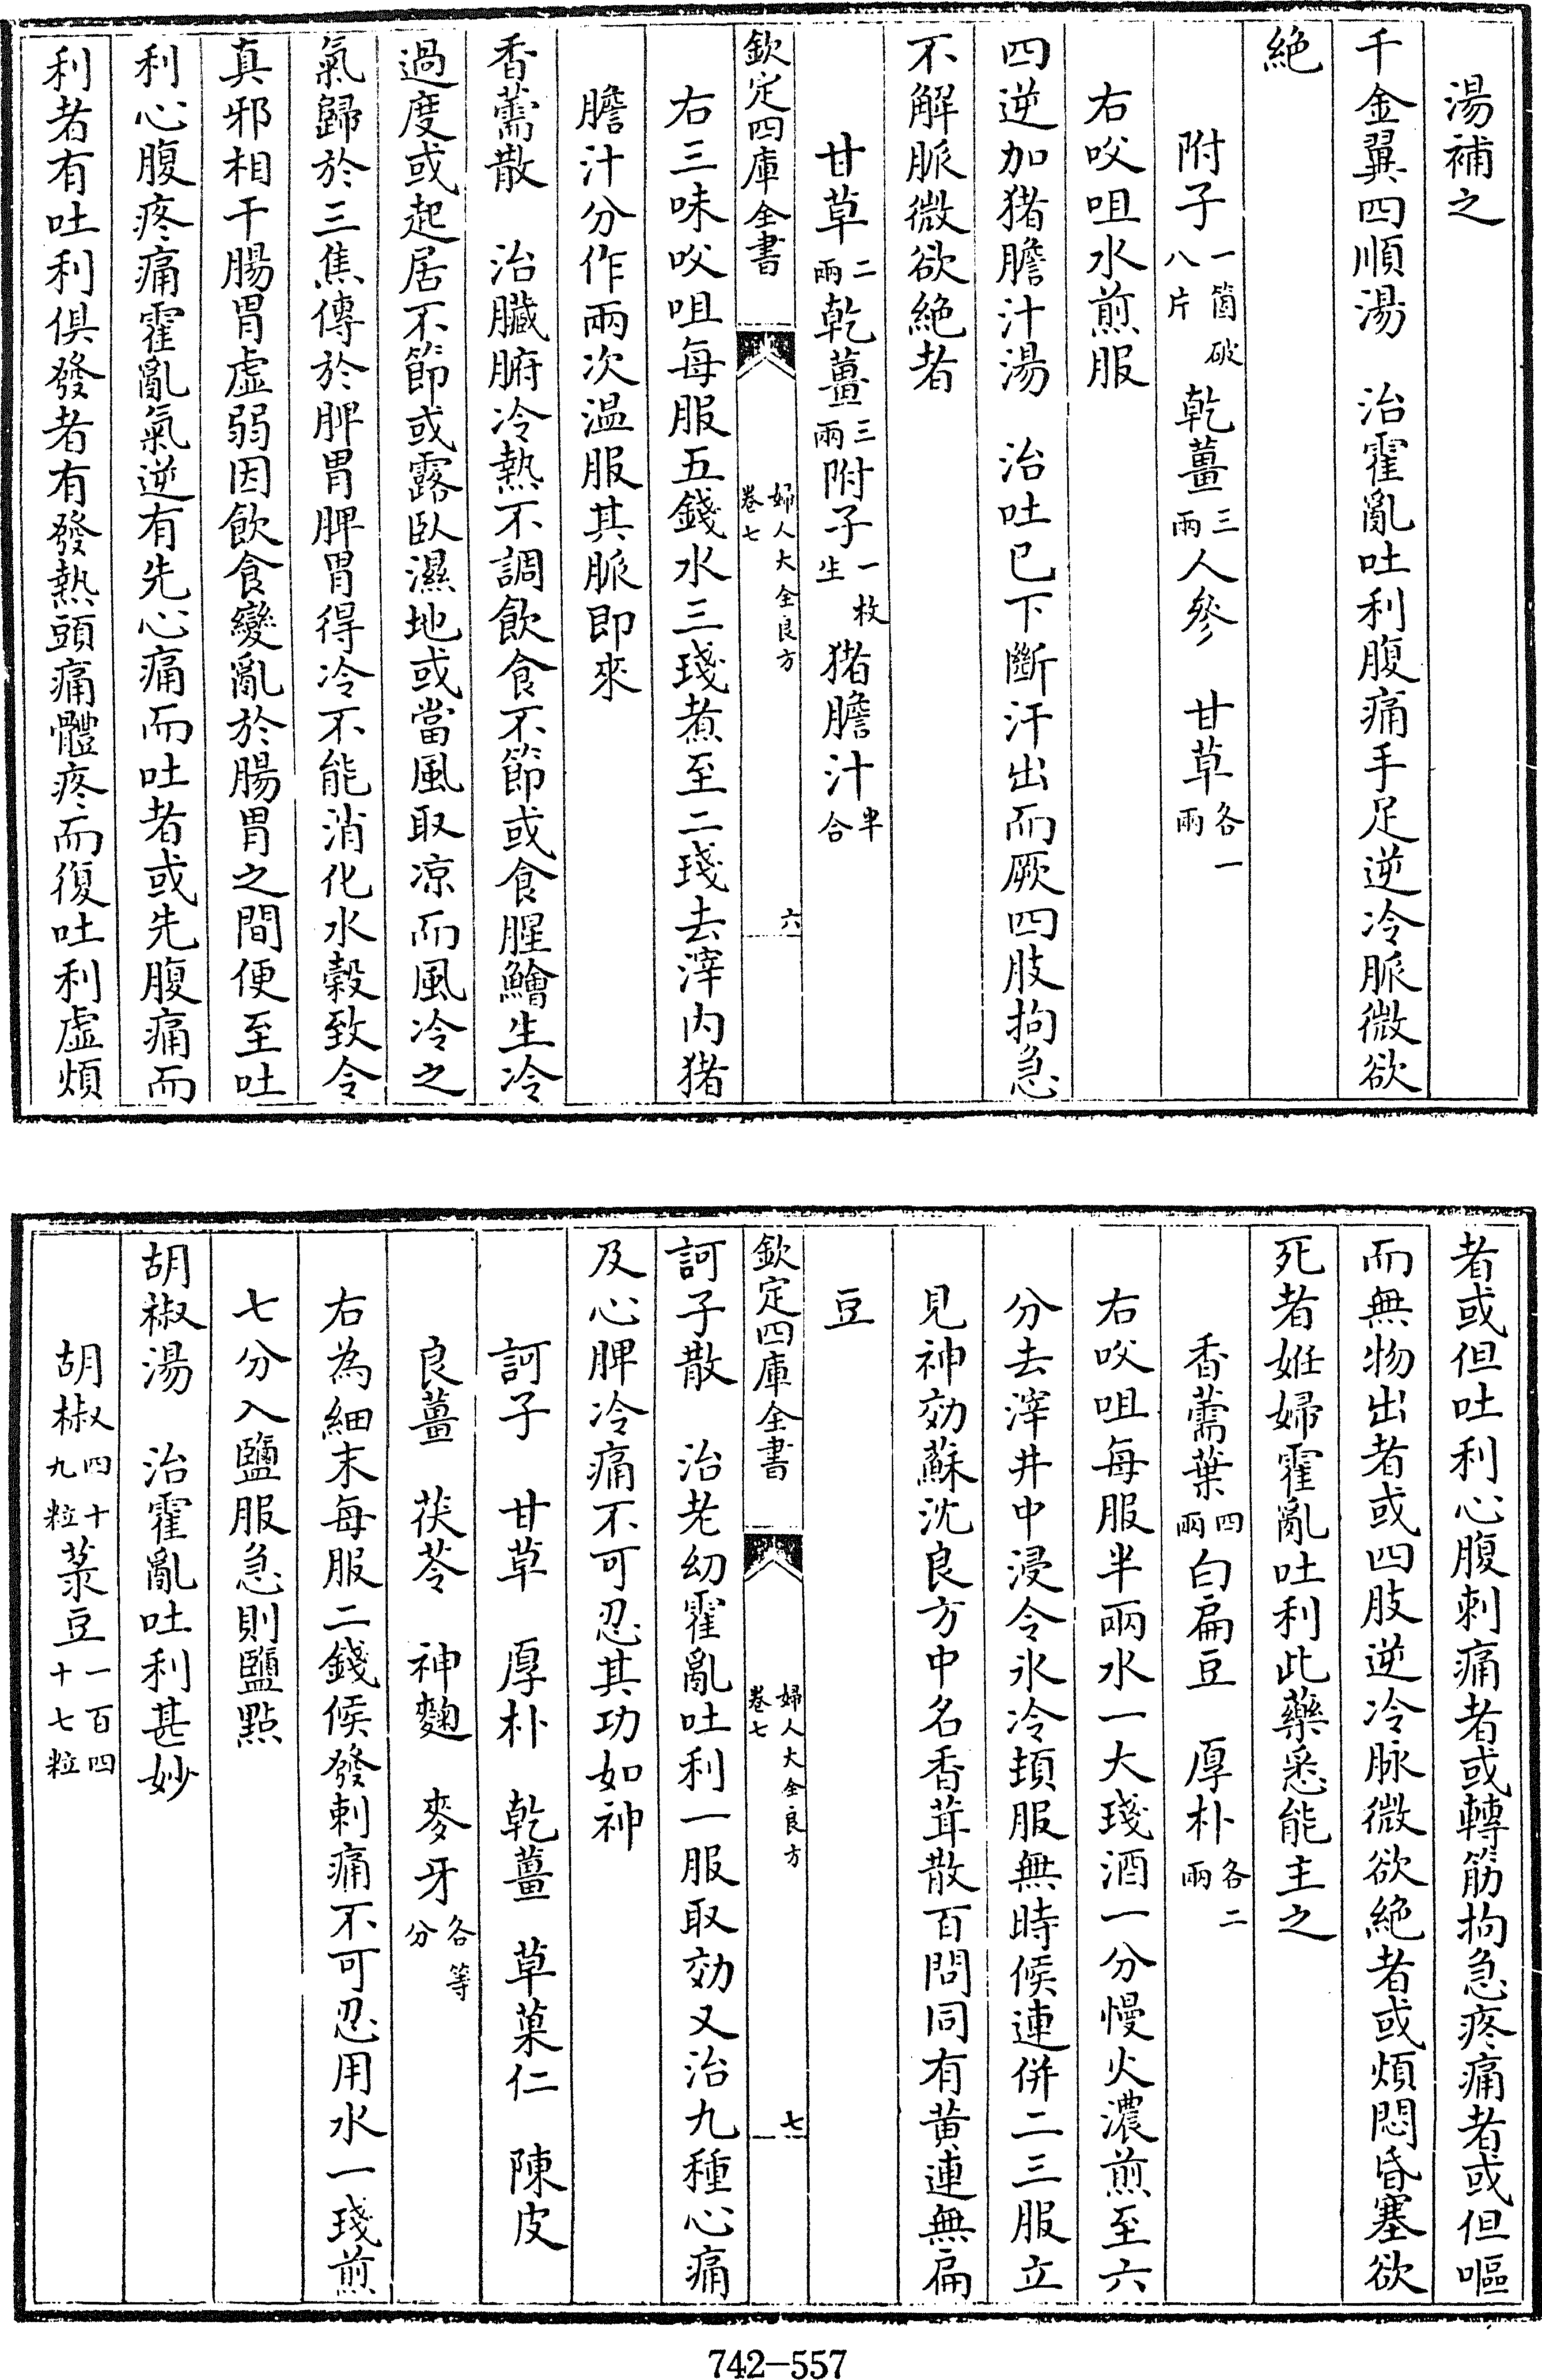 湯補之
千金翼四順湯　治霍亂吐利腹痛手足逆冷脈微欲
絶
附子一箇破八片　乾薑三兩人參　甘草各一兩
右㕮咀水煎服
四逆加猪膽汁湯　治吐已下斷汗出而厥四肢拘急
不解脈微欲絶者
甘草二兩乾薑三兩附子一枚生　猪膽汁半合
欽定四庫全書　婦人大全良方卷七　六
右三味㕮咀每服五錢水三琖煮至二琖去滓内猪
膽汁分作兩次温服其脈即來
香薷散　治臟腑冷熱不調飲食不節或食腥鱠生冷
過度或起居不節或露臥濕地或當風取凉而風冷之
氣歸於三焦傳於脾胃脾胃得冷不能消化水穀致令
真邪相干腸胃虚弱因飲食變亂於腸胃之間便至吐
利心腹疼痛霍亂氣逆有先心痛而吐者或先腹痛而
利者有吐利俱發者有發熱頭痛體疼而復吐利虚煩
者或但吐利心腹刺痛者或轉筋拘急疼痛者或但嘔
而無物出者或四肢逆冷脉微欲絶者或煩悶昏塞欲
死者姙婦霍亂吐利此藥悉能主之
香薷葉四兩白扁豆　厚朴各二兩
右㕮咀每服半兩水一大琖酒一分慢火濃煎至六
分去滓井中浸令氷冷頓服無時候連併二三服立
見神効蘇沈良方中名香茸散百問同有黄連無扁
豆
欽定四庫全書　婦人大全良方卷七　七
訶子散　治老幼霍亂吐利一服取効又治九種心痛
及心脾冷痛不可忍其功如神
訶子　甘草　厚朴　乾薑　草菓仁　陳皮
良薑　茯苓　神麴　麥牙各等分
右為細末每服二錢候發刺痛不可忍用水一琖煎
七分入鹽服急則鹽點
胡椒湯　治霍亂吐利甚妙
胡椒四十九粒菉豆一百四十七粒
742-557